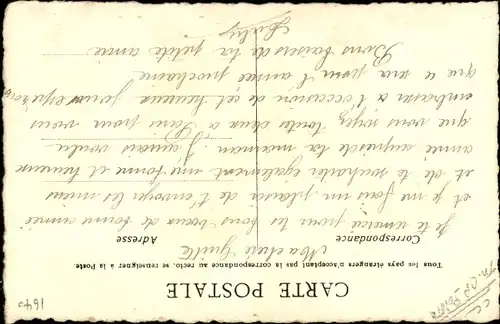 CARTE POSTALE
Tous les pays étrangers n'acceptant pas la correspondance au recto, se renseigner à la Poste.
Correspondance Adresse
Ma chère
Je te remercie pour les bons vœux de bonne année
et je me fais un plaisir de t'envoyer les miens
et de te souhaiter également une bonne et heureuse
année auprès de ta maman. J'aurais voulu
que vous soyez toute deux a Paris pour vous
embrasser a l'occasion de cet heureux jour
que ce sera pour l'année prochaine
Bons baisers de ta petite amie